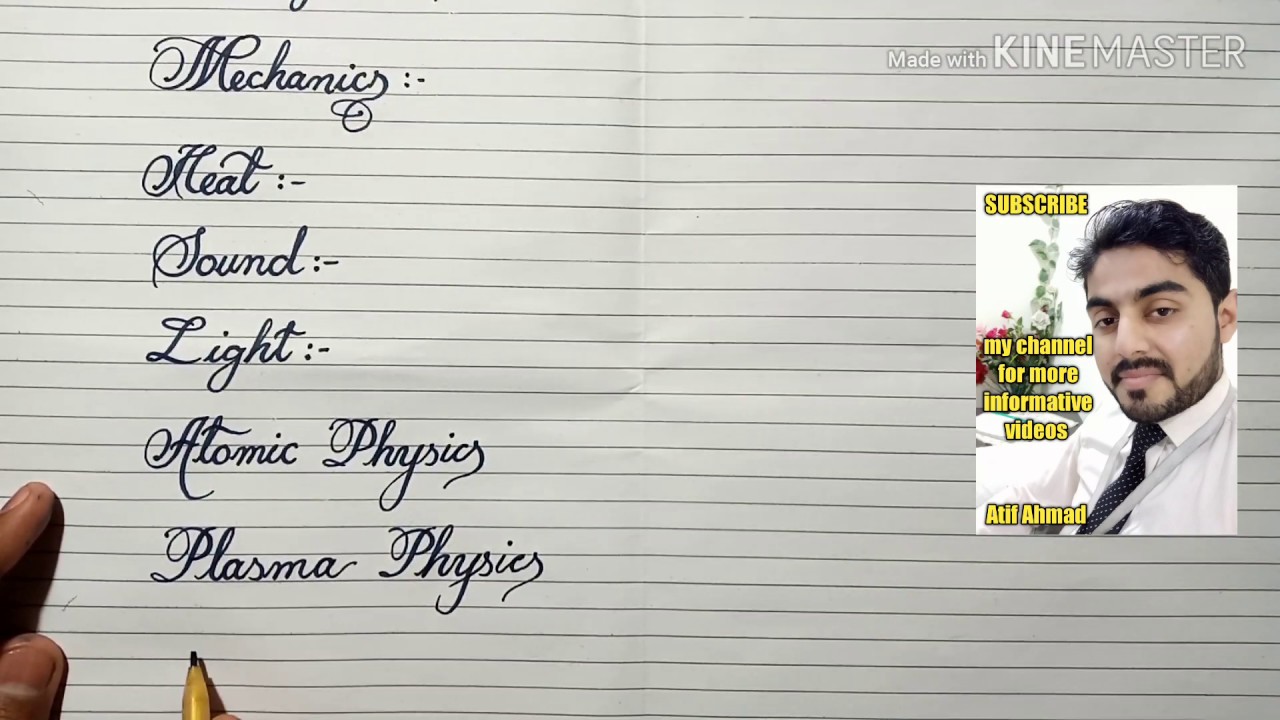 Made with KINEMASTER
Mechanics :-
Heat :-
Sound :-
Light :-
Atomic Physics
Plasma Physics
SUBSCRIBE
my channel
for more
informative
videos
Atif Ahmad